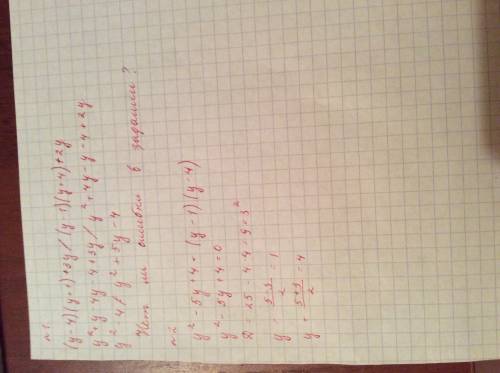 №1.
(y-4)(y+1)+3y/(y-1)(y+4)+2y
y²+y-4y-4+3y/y²+4y-y-4+2y
y²-4/y²+5y-4
Нет ли ошибки в задании?
№2
y²-5y+4=(y-1)(y-4)
y²-5y+4=0
D=25-4·4=9=3²
y=5-3/2=1
y=5+3/2=4